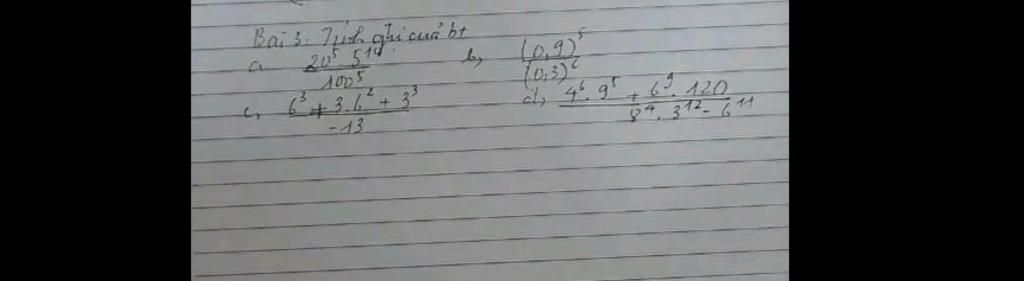 Bài 3. Tính gtri cuả bt
a, 20⁵.5¹⁰ / 100⁵ b, (0,9)⁵ / (0,3)⁶
c, 6³ + 3.6² + 3³ / -13 d, 4⁶.9⁵ + 6⁹.120 / 8⁴.3¹² - 6¹¹